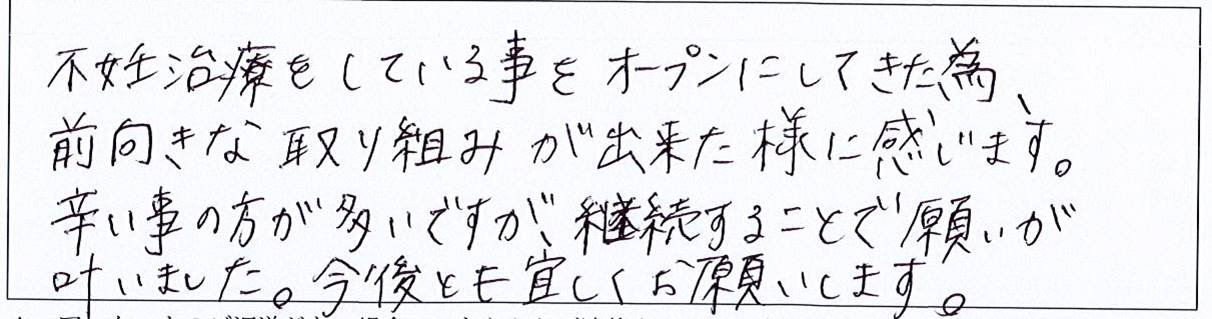 不妊治療をしている事をオープンにしてきた為、
前向きな取り組みが出来た様に感じます。
辛い事の方が多いですが、継続することで願いが
叶いました。今後とも宜しくお願いします。